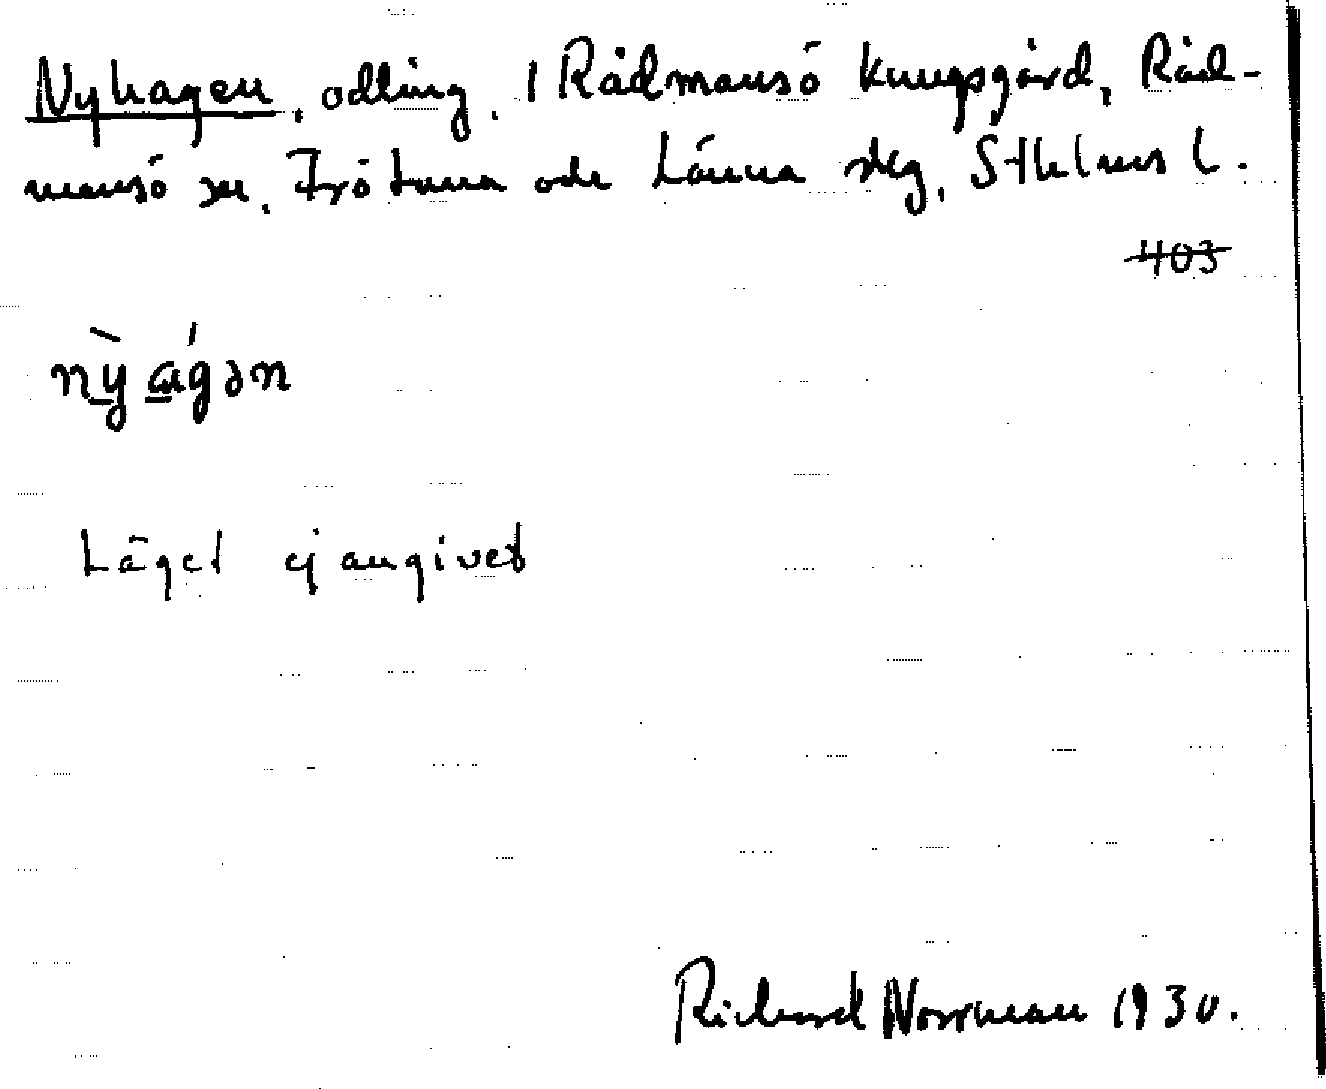 Nyhagen, odling, i Rådmansö kungsgård, Råd-
mansö sn, Frötuna och Länna skg, Sthlms l.
403
nỳágən
Läget ej angivet
Richard Norrman 1930.